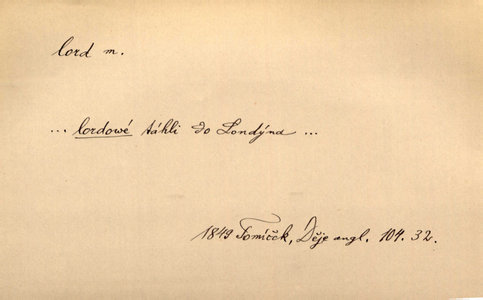 lord m.
... lordowé táhli do Londýna ...
1849 Tomíček, Děje angl. 104. 32.